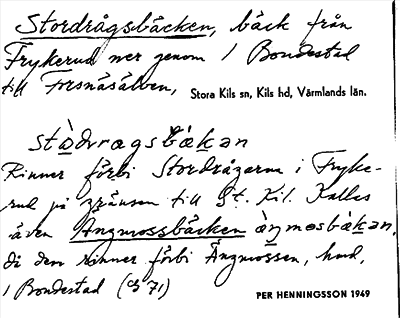 Stordrågsbäcken, bäck från
Frykerud ner genom 1 Bondestad
till Forsnäsälven,
Stora Kils sn, Kils hd, Värmlands län.
stòdragsbákan
Rinner förbi Stordrågarna i Fryke-
rud på gränsen till St. Kil. Kallas
även Ängmossbäcken àŋmosbákan,
då den rinner förbi Ängmossen,
1 Bondestad
PER HENNINGSSON 1949